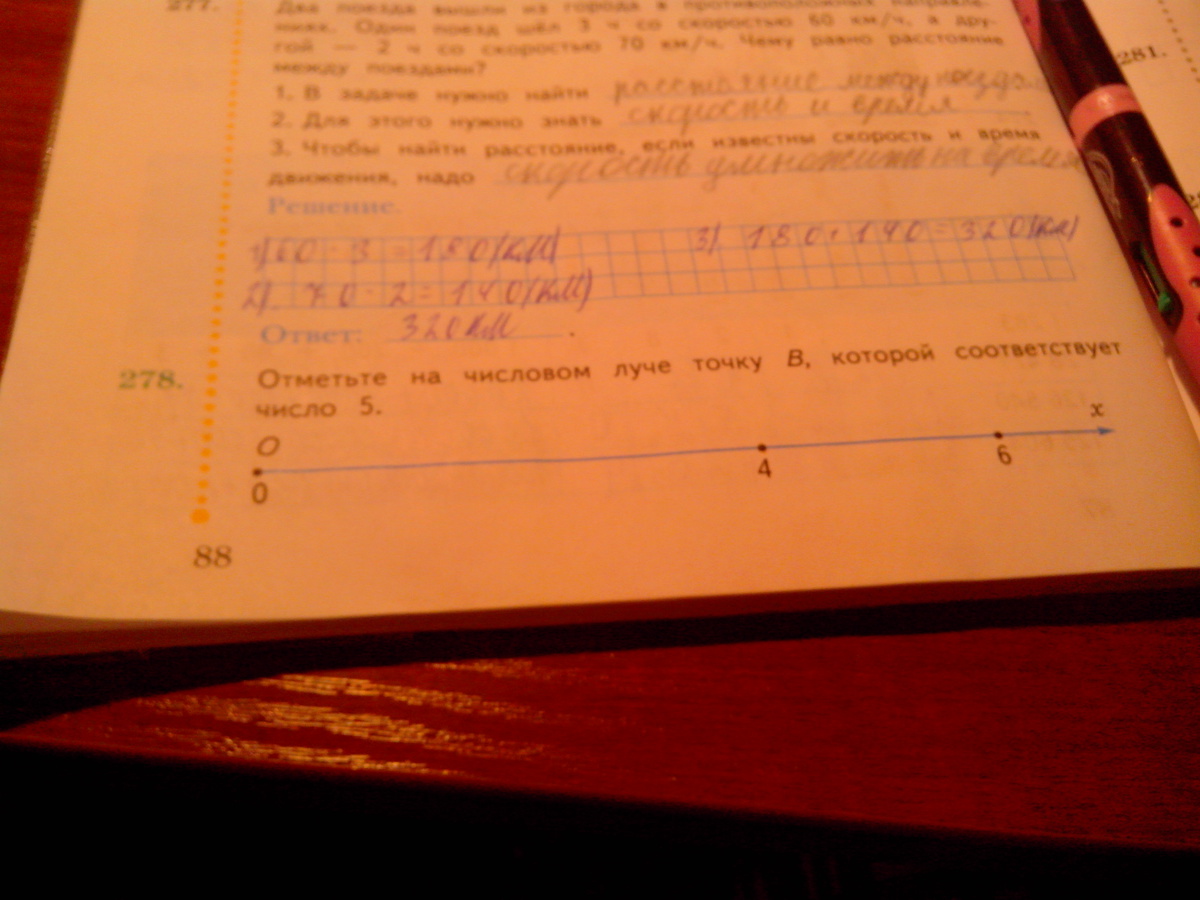 277. Два поезда вышли из города в противоположных направле-
ниях. Один поезд шёл 3 ч со скоростью 60 км/ч, а дру-
гой — 2 ч со скоростью 70 км/ч. Чему равно расстояние
между поездами?
1. В задаче нужно найти расстояние между поезда
2. Для этого нужно знать скорость и время
3. Чтобы найти расстояние, если известны скорость и время
движения, надо скорость умножить на время
Решение.
1) 60 · 3 = 180 (км) 3) 180 + 140 = 320 (км)
2) 70 · 2 = 140 (км)
Ответ: 320 км.
278. Отметьте на числовом луче точку B, которой соответствует
число 5.
O x
0 4 6
88
281.